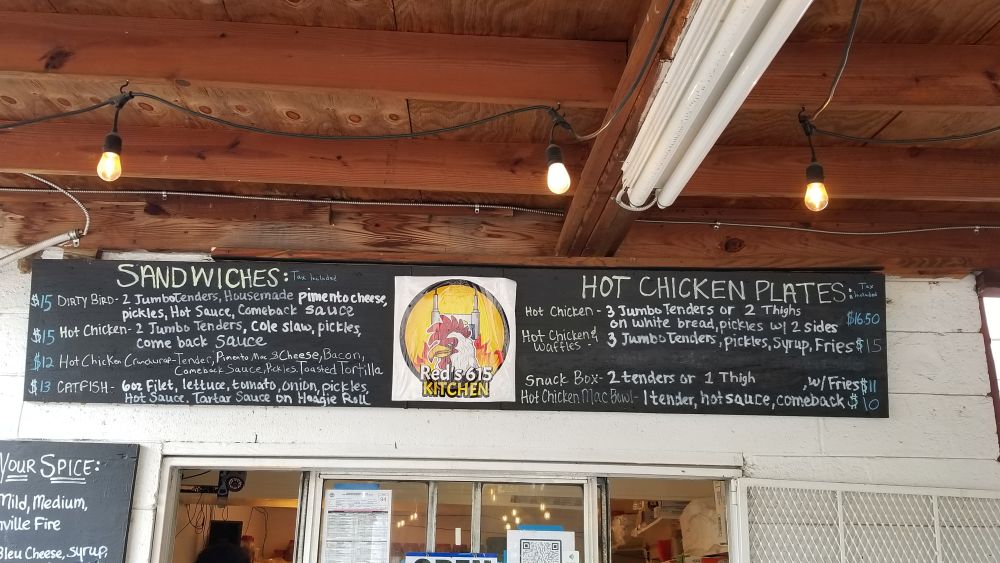 SANDWICHES: Tax Included
$15 DIRTY BIRD- 2 Jumbo Tenders, Housemade Pimento cheese,
pickles, Hot Sauce, Comeback Sauce
$15 Hot Chicken- 2 Jumbo Tenders, Cole slaw, pickles,
come back sauce
$12 Hot Chicken Crunchwrap-Tender, Pimento Mac & Cheese, Bacon,
Comeback Sauce, Pickles, Toasted Tortilla
$13 CATFISH- 6oz Filet, lettuce, tomato, onion, pickles
Hot Sauce, Tartar Sauce on Hoagie Roll
Red's 615
KITCHEN
HOT CHICKEN PLATES: Tax Included
Hot Chicken- 3 Jumbo Tenders or 2 Thighs
on white bread, pickles w/ 2 sides $16.50
Hot Chicken & Waffles- 3 Jumbo Tenders, pickles, Syrup, Fries $15
Snack Box- 2 tenders or 1 Thigh , w/ Fries $11
Hot Chicken Mac Bowl- 1 tender, hot sauce, comeback $10
YOUR SPICE:
Mild, Medium,
ville Fire
Bleu Cheese, Syrup,
OPEN